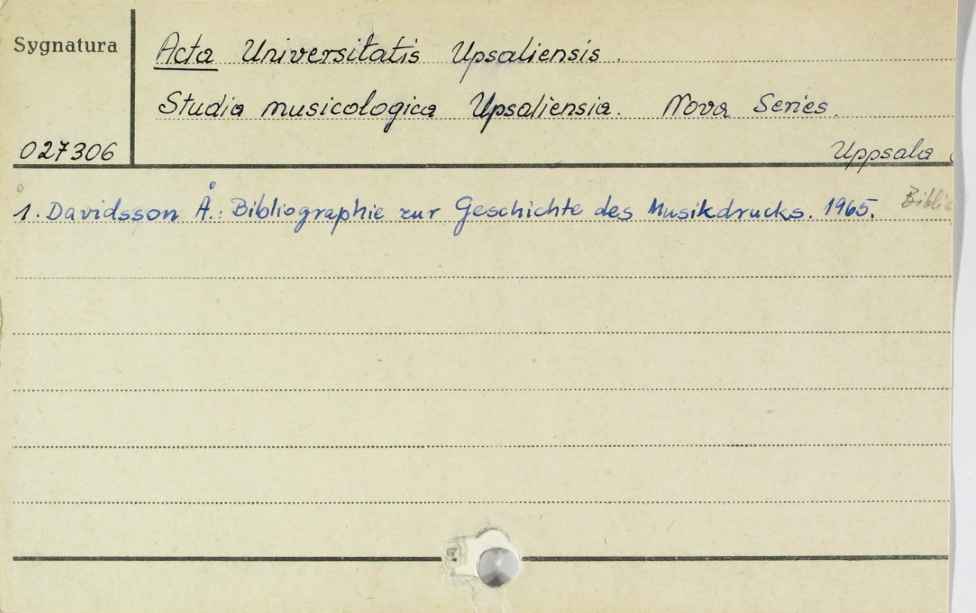 Sygnatura
Acta Universitatis Upsaliensis.
Studia musicologica Upsaliensia. Nova Series.
027306
Uppsala
1. Davidsson Å.: Bibliographie zur Geschichte des Musikdrucks. 1965.